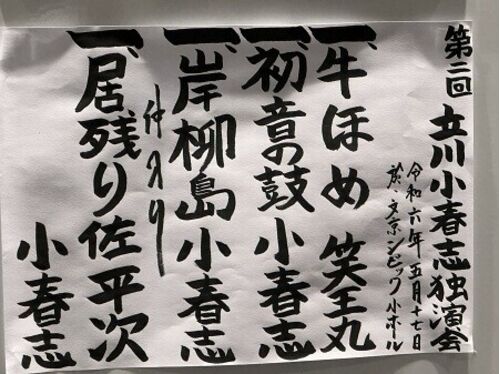 第二回 立川小春志独演会
令和六年五月十七日
於、文京シビック小ホール
一、牛ほめ 笑王丸
一、初音の鼓 小春志
一、岸柳島 小春志
仲入り
一、居残り佐平次
小春志